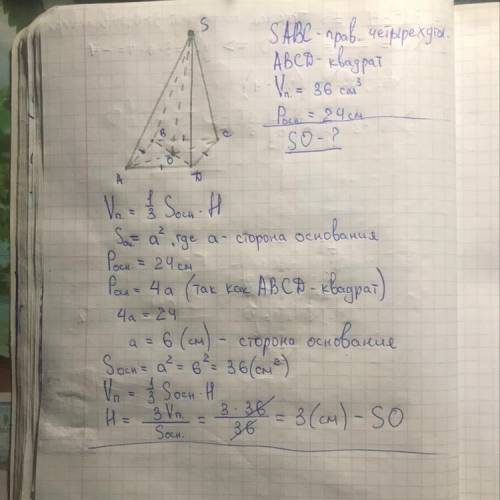 S
SABC - прав. четырехуг.
ABCD - квадрат
Vп. = 36 см³
Pосн. = 24 см
SO - ?
B
K
C
O
A
D
Vп = 1/3 Sосн · H
= a², где a - сторона основания
Pосн. = 24 см
Pосн = 4a (так как ABCD - квадрат)
4a = 24
a = 6 (см) - сторона основания
Sосн = a² = 6² = 36 (см²)
Vп = 1/3 Sосн · H
H = 3Vп. / Sосн. = 3 · 36 / 36 = 3 (см) - SO